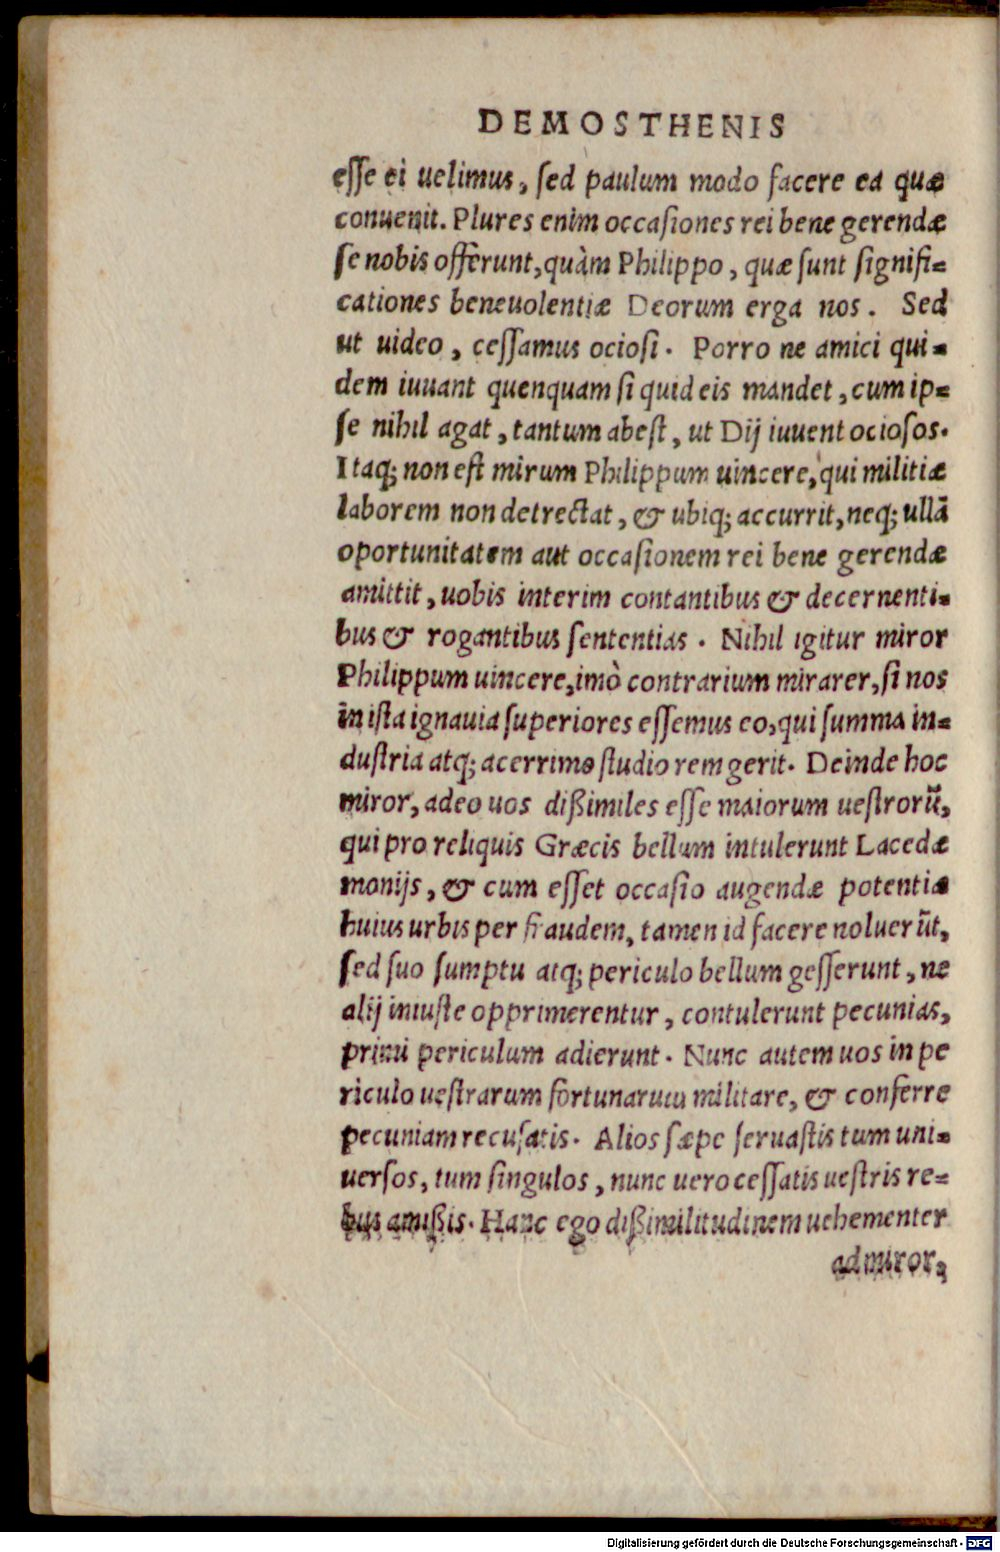 DEMOSTHENIS
esse ei uelimus, sed paulum modo facere ea quæ
conuenit. Plures enim occasiones rei bene gerendæ
se nobis offerunt, quàm Philippo, quæ sunt signifi-
cationes beneuolentiæ Deorum erga nos. Sed
ut uideo, cessamus ociosi. Porro ne amici qui-
dem iuuant quenquam si quid eis mandet, cum ip-
se nihil agat, tantum abest, ut Dij iuuent ociosos.
Itaq; non est mirum Philippum uincere, qui militiæ
laborem non detrectat, & ubiq; accurrit, neq; ullā
oportunitatem aut occasionem rei bene gerendæ
amittit, uobis interim contantibus & decernenti-
bus & rogantibus sententias. Nihil igitur miror
Philippum uincere, imò contrarium mirarer, si nos
in ista ignauia superiores essemus eo, qui summa in-
dustria atq; acerrimo studio rem gerit. Deinde hoc
miror, adeo uos dißimiles esse maiorum uestrorū,
qui pro reliquis Græcis bellum intulerunt Lacedæ
monijs, & cum esset occasio augendæ potentiæ
huius urbis per fraudem, tamen id facere noluerūt,
sed suo sumptu atq; periculo bellum gesserunt, ne
alij iniuste opprimerentur, contulerunt pecunias,
primi periculum adierunt. Nunc autem uos in pe
riculo uestrarum fortunarum militare, & conferre
pecuniam recusatis. Alios sæpe seruastis tum uni-
uersos, tum singulos, nunc uero cessatis uestris re-
bus amißis. Hanc ego dißimilitudinem uehementer
admiror,
Digitalisierung gefördert durch die Deutsche Forschungsgemeinschaft - DFG